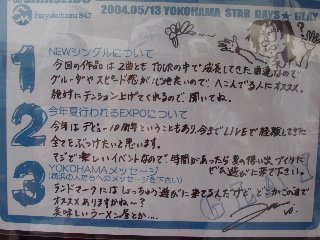 fm yokohama 84.7
2004.05/13 YOKOHAMA STAR DAYS★GLAY
1
NEWシングルについて
今回の作品は2曲ともTOURの中で成長してきた曲達なので
グルーヴやスピード感が心地良いので、へこんでる人にオススメ。
絶対にテンション上げてくれるので聞いてね。
2
今年夏行われるEXPOについて
今年はデビュー10周年ということもあり、今までLIVEで経験してきた
全てをぶつけたいと思います。
マジで楽しいイベントなので、時間があったら夏の想い出づくりに
ぜひ遊びに来て下さい。
3
YOKOHAMAメッセージ
(横浜の人たちへのメッセージを下さい)
ランドマークにはしょっちゅう遊びに来てるんだけど、どこかこの辺で
オススメありますかね〜?
美味しいラーメン屋とか…